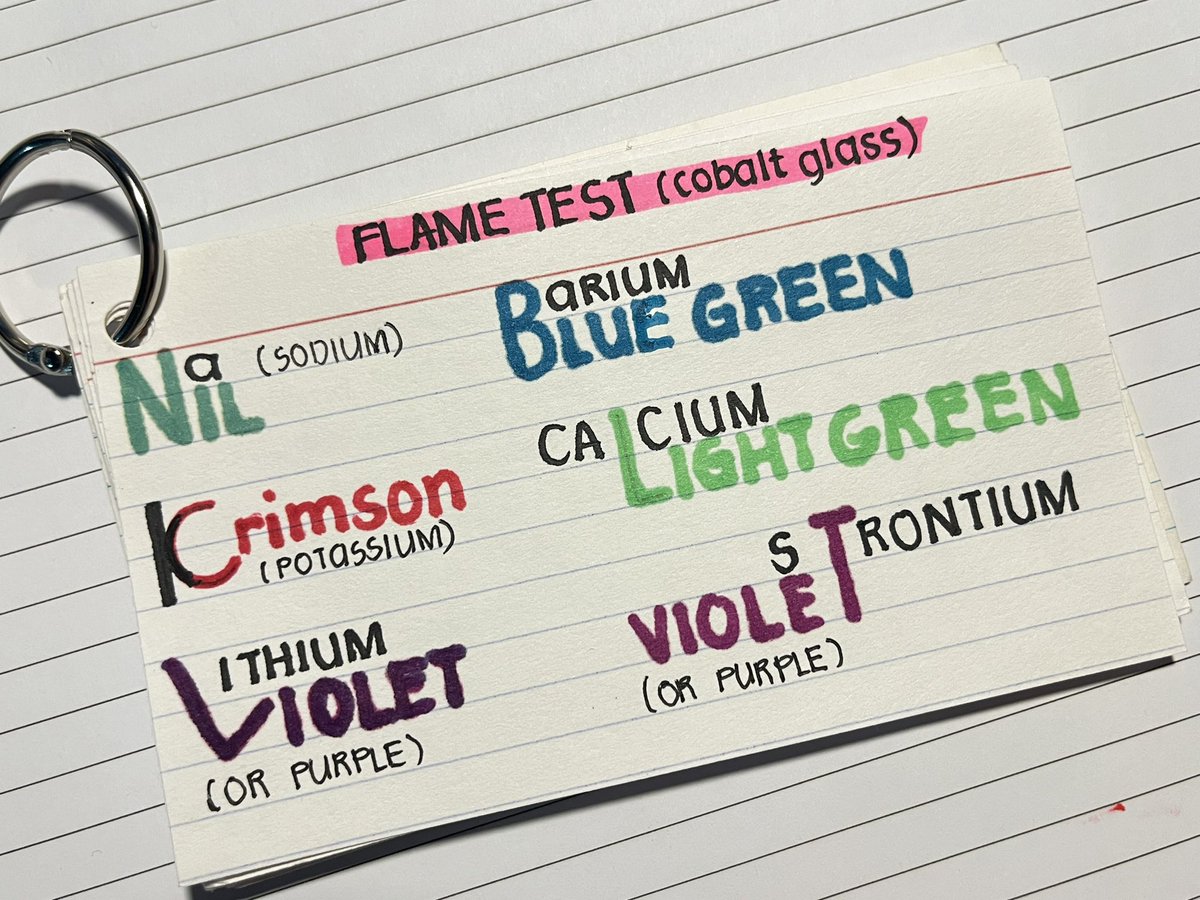 FLAME TEST (cobalt glass)
Na (SODIUM)
NiL
KCrimson
(POTASSIUM)
LITHIUM
VIOLET
(OR PURPLE)
BARIUM
BLUE GREEN
CALCIUM
LIGHT GREEN
STRONTIUM
VIOLET
(OR PURPLE)